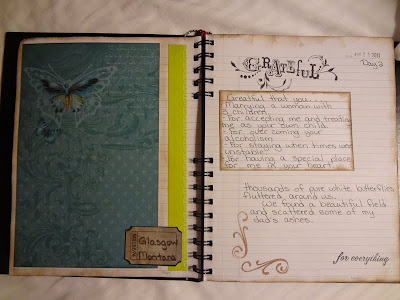 Glasgow
Montana
GRATEFUL
Day 2
Greatful that you....
Marrying a woman with
3 children.
- For accepting me and treating
me as your own child.
- For over coming your
alcoholism
- For staying when times were
unstable.
- For having a special place
for me in your heart.
thousands of pure white butterflies
fluttered around us.
We found a beautiful field
and scattered some of my
dad's ashes.
for everything